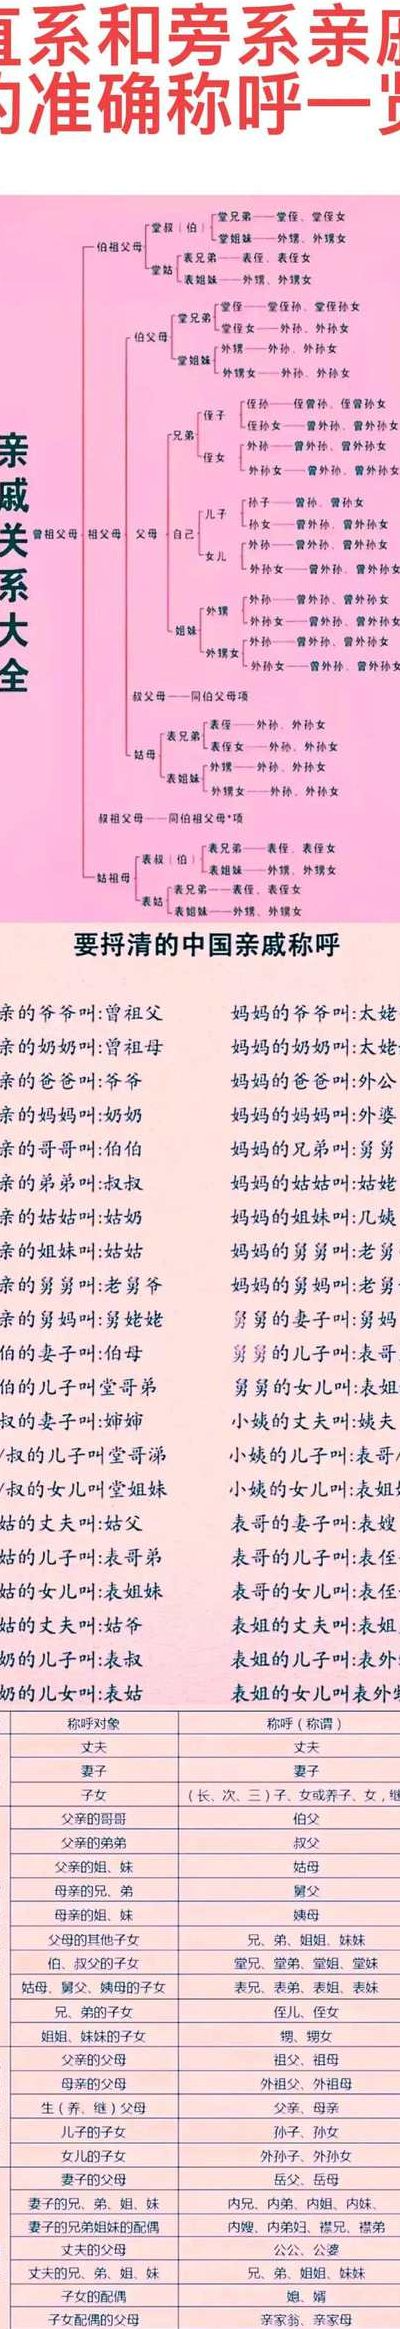 直系和旁系亲戚
的准确称呼一览
亲戚关系大全
曾祖父母
祖父母
父母
自己
伯祖父母
堂叔（伯）
堂兄弟——堂侄、堂侄女
堂姐妹——外甥、外甥女
堂姑
表兄弟——表侄、表侄女
表姐妹——外甥、外甥女
伯父母
堂兄弟
堂侄——堂侄孙、堂侄孙女
堂侄女——外孙、外孙女
堂姐妹
外甥——外孙、外孙女
外甥女——外孙、外孙女
兄弟
侄子
侄孙——侄曾孙、侄曾孙女
侄孙女——曾外孙、曾外孙女
侄女
外孙——曾外孙、曾外孙女
外孙女——曾外孙、曾外孙女
儿子
孙子——曾孙、曾孙女
孙女——曾外孙、曾外孙女
女儿
外孙——曾外孙、曾外孙女
外孙女——曾外孙、曾外孙女
姐妹
外甥
外孙——曾外孙、曾外孙女
外孙女——曾外孙、曾外孙女
外甥女
外孙——曾外孙、曾外孙女
外孙女——曾外孙、曾外孙女
叔父母——同伯父母项
姑母
表兄弟
表侄——外孙、外孙女
表侄女——外孙、外孙女
表姐妹
外甥——外孙、外孙女
外甥女——外孙、外孙女
叔祖父母——同伯祖父母*项
姑祖母
表叔（伯）
表兄弟——表侄、表侄女
表姐妹——外甥、外甥女
表姑
表兄弟——表侄、表侄女
表姐妹——外甥、外甥女
要捋清的中国亲戚称呼
亲的爷爷叫:曾祖父 妈妈的爷爷叫:太姥
亲的奶奶叫:曾祖母 妈妈的奶奶叫:太姥
亲的爸爸叫:爷爷 妈妈的爸爸叫:外公
亲的妈妈叫:奶奶 妈妈的妈妈叫:外婆
亲的哥哥叫:伯伯 妈妈的兄弟叫:舅舅
亲的弟弟叫:叔叔 妈妈的姑姑叫:姑姥
亲的姑姑叫:姑奶 妈妈的姐妹叫:几姨
亲的姐妹叫:姑姑 妈妈的舅舅叫:老舅
亲的舅舅叫:老舅爷 妈妈的舅妈叫:老舅
亲的舅妈叫:舅姥姥 舅舅的妻子叫:舅妈
伯的妻子叫:伯母 舅舅的儿子叫:表哥
伯的儿子叫堂哥弟 舅舅的女儿叫:表姐
叔的妻子叫:婶婶 小姨的丈夫叫:姨夫
/叔的儿子叫堂哥涕 小姨的儿子叫:表哥/
/叔的女儿叫堂姐妹 小姨的女儿叫:表姐
姑的丈夫叫:姑父 表哥的妻子叫:表嫂
姑的儿子叫:表哥弟 表哥的儿子叫:表侄
姑的女儿叫:表姐妹 表哥的女儿叫:表侄
姑的丈夫叫:姑爷 表姐的丈夫叫:表姐
奶的儿子叫:表叔 表姐的儿子叫:表外
奶的儿女叫:表姑 表姐的女儿叫表外
称呼对象 称呼（称谓）
丈夫 丈夫
妻子 妻子
子女 （长、次、三）子、女或养子、女，继
父亲的哥哥 伯父
父亲的弟弟 叔父
父亲的姐、妹 姑母
母亲的兄、弟 舅父
母亲的姐、妹 姨母
父母的其他子女 兄、弟、姐姐、妹妹
伯、叔父的子女 堂兄、堂弟、堂姐、堂妹
姑母、舅父、姨母的子女 表兄、表弟、表姐、表妹
兄、弟的子女 侄儿、侄女
姐姐、妹妹的子女 甥、甥女
父亲的父母 祖父、祖母
母亲的父母 外祖父、外祖母
生（养、继）父母 父亲、母亲
儿子的子女 孙子、孙女
女儿的子女 外孙子、外孙女
妻子的父母 岳父、岳母
妻子的兄、弟、姐、妹 内兄、内弟、内姐、内妹、
妻子的兄弟姐妹的配偶 内嫂、内弟妇、襟兄、襟弟
丈夫的父母 公公、公婆
丈夫的兄、弟、姐、妹 兄、弟、姐姐、妹妹
子女的配偶 媳、婿
子女配偶的父母 亲家翁、亲家母